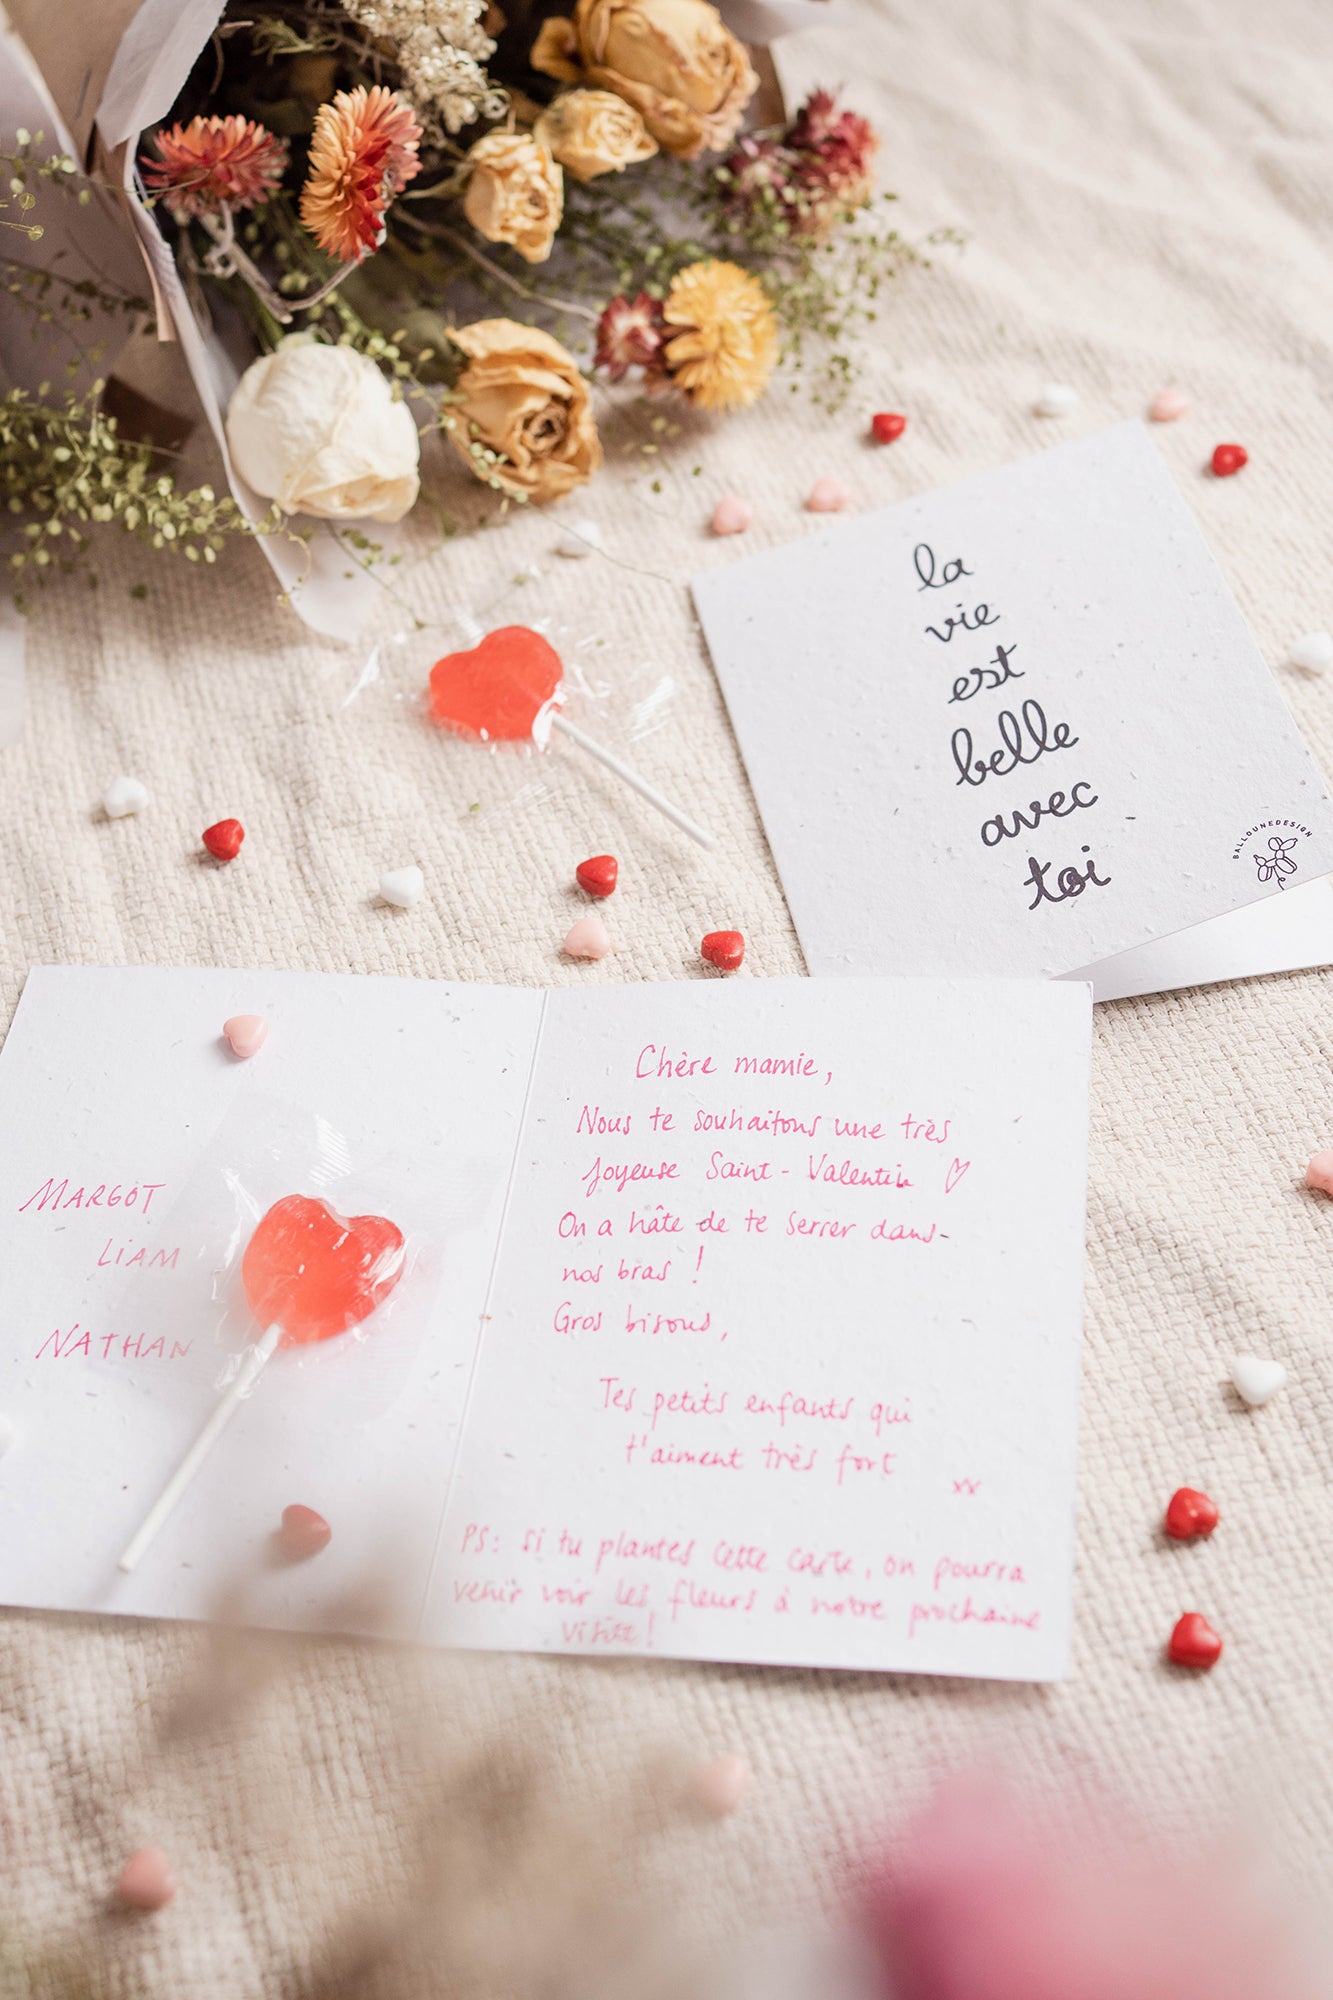 la
vie
est
belle
avec
toi
BALLOUNEDESIGN
MARGOT
LIAM
NATHAN
Chère mamie,
Nous te souhaitons une très
joyeuse Saint-Valentin ♡
On a hâte de te serrer dans-
nos bras !
Gros bisous,
Tes petits enfants qui
t'aiment très fort
xx
PS: si tu plantes cette carte, on pourra
venir voir les fleurs à notre prochaine
visite!